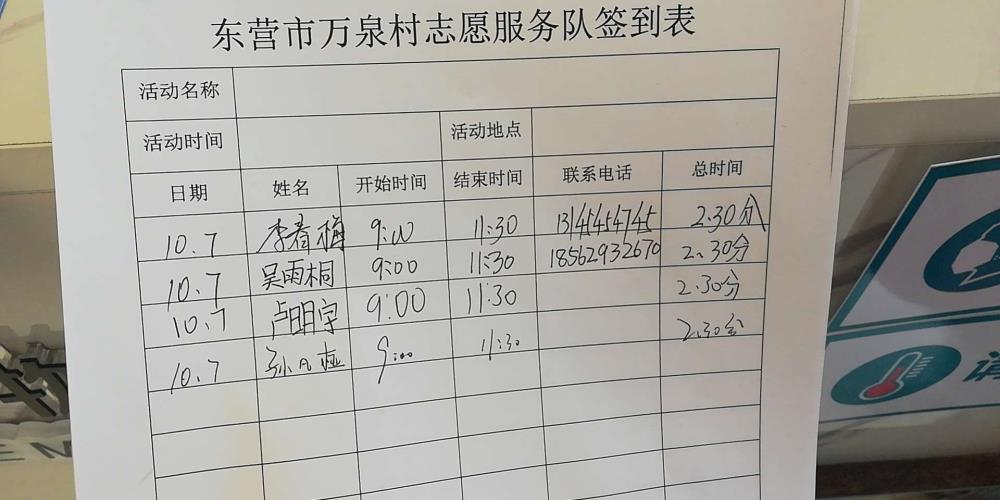 东营市万泉村志愿服务队签到表
活动名称
活动时间 活动地点
日期 姓名 开始时间 结束时间 联系电话 总时间
10.7 李春梅 9:00 11:30 13145454745 2.30分
10.7 吴雨桐 9:00 11:30 18562932670 2.30分
10.7 卢明宇 9:00 11:30 2.30分
10.7 孙 9:00 11:30 2.30分